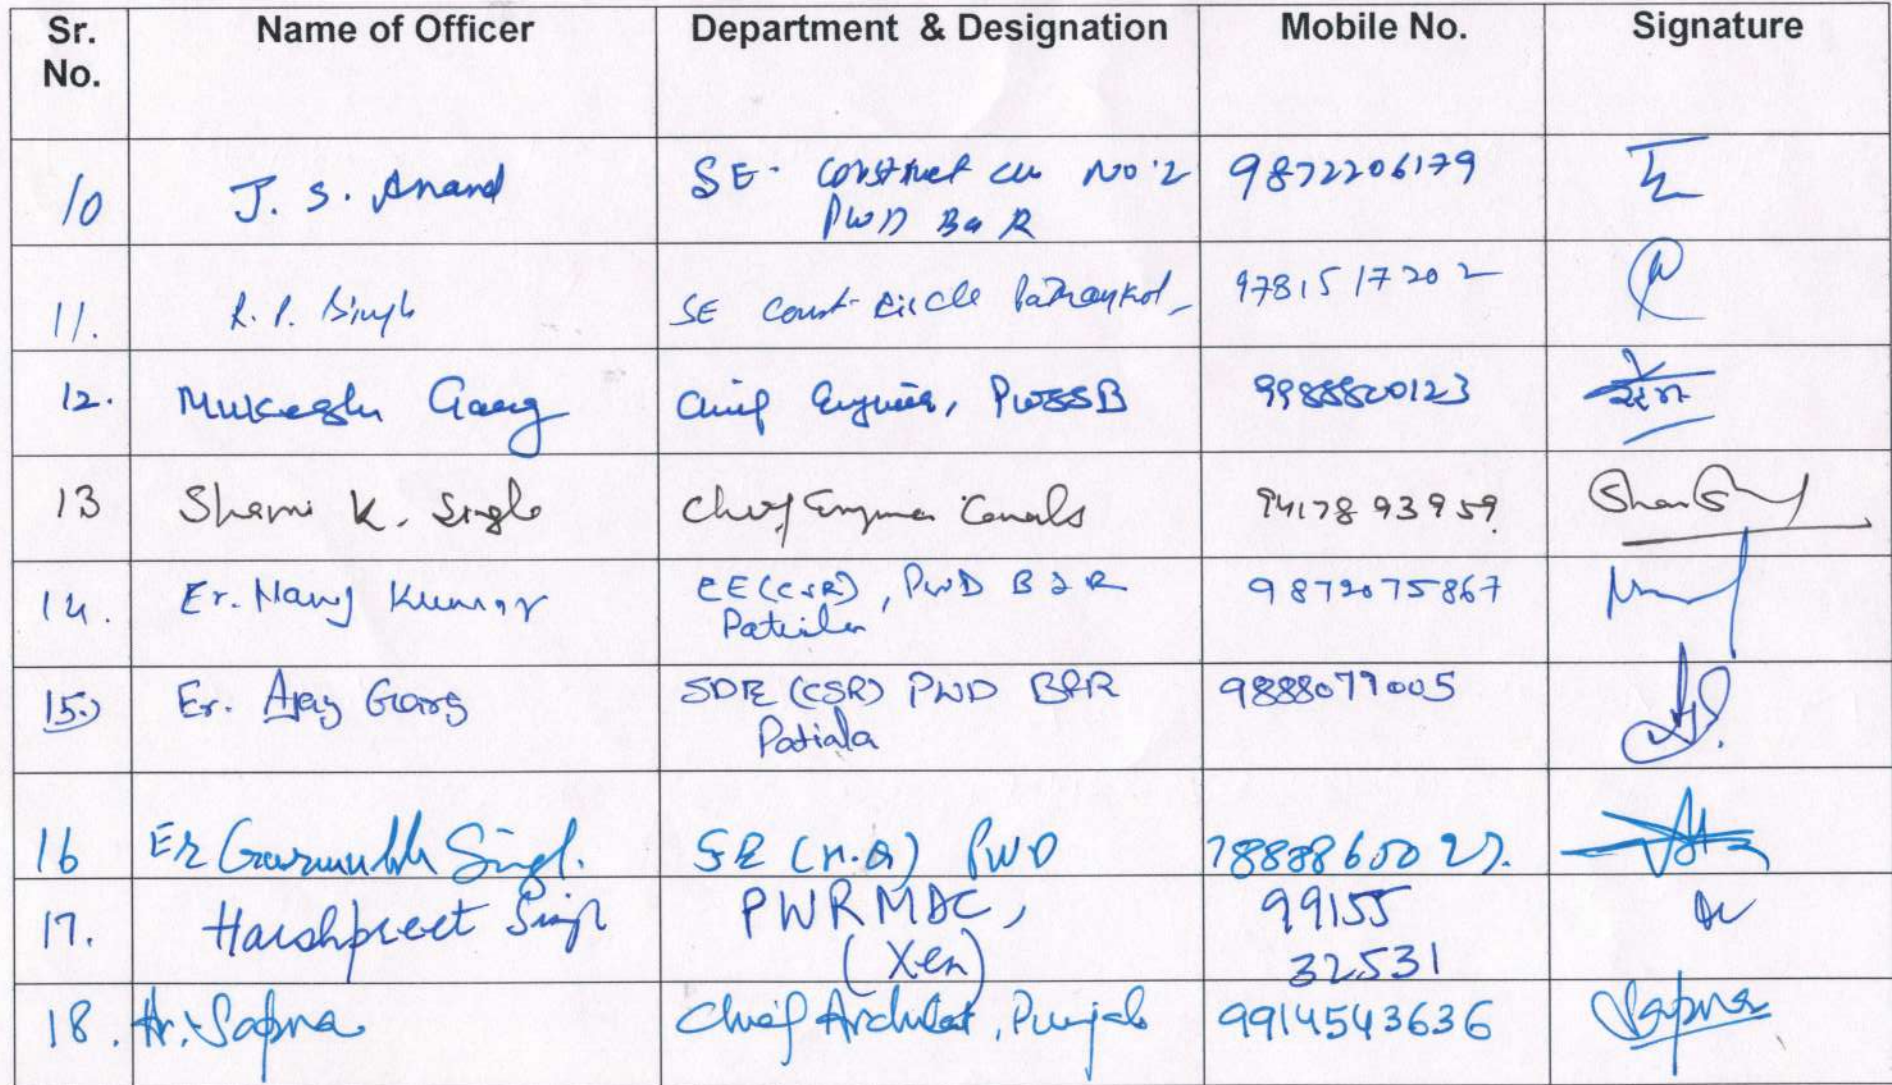 Sr. No. Name of Officer Department & Designation Mobile No. Signature
10 J. S. Anand SE. Construct No. 2 9872206179
PWD B&R
11. R. P. Singh SE Const. Circle Pathankot 9781517202
12. Mukesh Garg Chief Engineer, PWSSB 9988800123
13 Shami K. Singla Chief Engineer Canals 9417893959
14. Er. Manoj Kumar EE (CSR), PWD B&R 9872075867
Patiala
15. Er. Ajay Garg SDE (CSR) PWD B&R 9888079005
Patiala
16 Er Gurmukh Singh SE PWD 7888860027.
17. Harshpreet Singh PWRMDC, 99155
(Xen) 32531
18. Ar. Sapna Chief Architect, Punjab 9914543636 Sapna